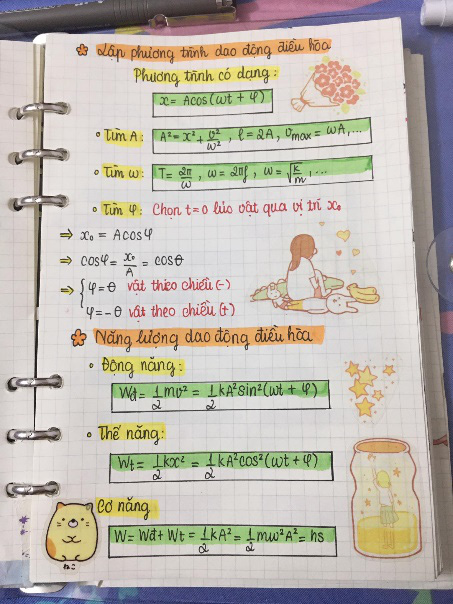 Lập phương trình dao động điều hòa
Phương trình có dạng:
x = Acos(ωt + φ)
• Tìm A: A² = x² + v²/ω², ℓ = 2A, υmax = ωA,...
• Tìm ω: T = 2π/ω, ω = 2πf, ω = √(k/m),...
• Tìm φ: Chọn t=0 lúc vật qua vị trí x₀
⇒ x₀ = Acosφ
⇒ cosφ = x₀/A = cosθ
⇒ { φ = θ vật theo chiều (-)
φ = -θ vật theo chiều (+)
Năng lượng dao động điều hòa
• Động năng:
Wđ = 1/2 mv² = 1/2 kA²sin²(ωt + φ)
• Thế năng:
Wt = 1/2 kx² = 1/2 kA²cos²(ωt + φ)
• Cơ năng
W = Wđ + Wt = 1/2 kA² = 1/2 mω²A² = hs
ねこ